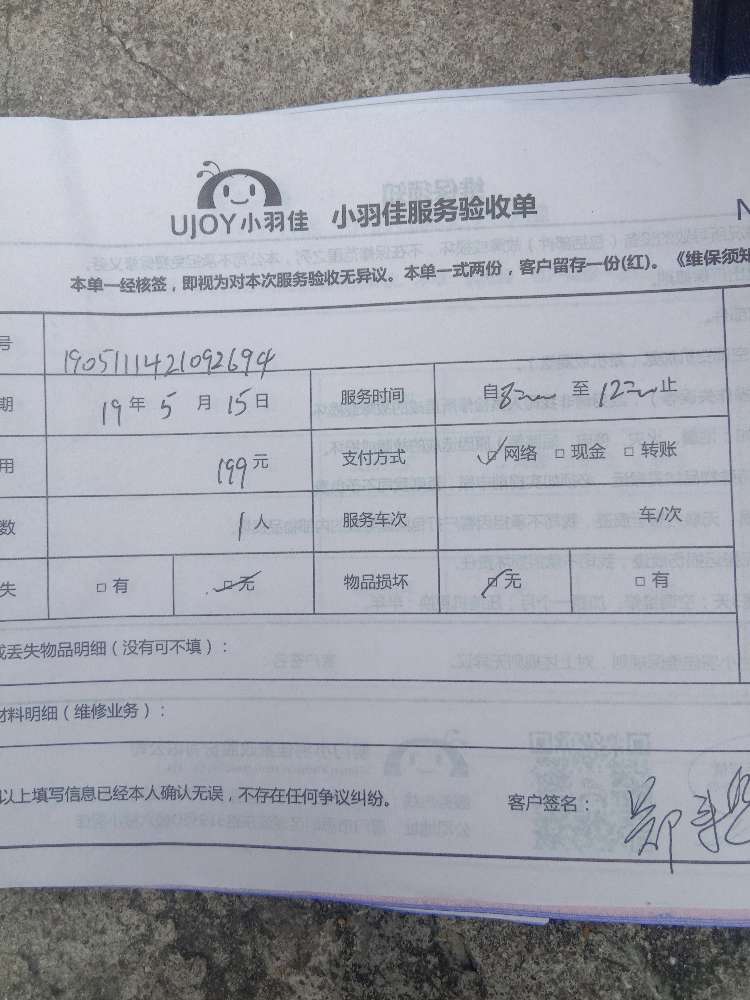 UJOY小羽佳 小羽佳服务验收单
本单一经核签，即视为对本次服务验收无异议。本单一式两份，客户留存一份(红)。《维保须知
号 1905111421092694
期 19年5月15日 服务时间 自8 至12 止
用 199元 支付方式 ☑网络 □现金 □转账
数 1人 服务车次 车/次
失 □有 ☑无 物品损坏 ☑无 □有
或丢失物品明细（没有可不填）：
材料明细（维修业务）：
以上填写信息已经本人确认无误，不存在任何争议纠纷。 客户签名： 郑